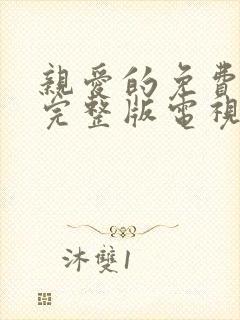 親愛的免費
完整版電視
沐雙1